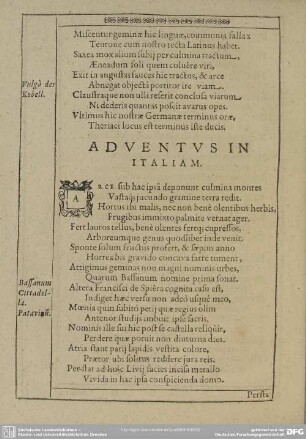 Miscentur geminæ hic linguæ, communia fallax
Teutone cum nostro tecta Latinus habet.
Saxea mox alium subij per culmina tractum,
Æneadum soli quem coluêre viri,
Vulgò der
Kobell.
Exit in angustas fauces hic tractus, & arce
Abnegat objectâ portitor ire viam
Claustraque non ulli referit conclusa viarum
Ni dederis quantas poscit avarus opes.
Ultimus hic nostræ Germanæ terminus oræ,
Theriaci locus est terminus iste ducis.
ADVENTUS IN
ITALIAM.
ARCE sub hac ipsâ deponunt culmina montes
Vastaque jucundo gramine terra redit.
Hortus ibi malis, nec non benè olentibus herbis,
Frugibus immixto palmite vernat ager.
Fert lauros tellus, benè olentes fertque cupressos,
Arboreumque genus quodliber inde venit.
Sponte solum fructus profert, & sæpius anno
Horrea bis gravido concava farre tument,
Bassanum
Cittadel-
la.
Patavium.
Attigimus geminas non magni nominis urbes,
Quarum Bassanum nomine prima sonat.
Altera Francisci de Spiera cognita casu est,
Indiget hæc versu non adeò usque meo,
Mœnia quin subito peti quæ regius olim
Antenor studijs imbuit ipse sacris.
Nominis ille sui hic post se castella reliquit,
Perdere quæ potuit non diuturna dies.
Atria stant parij lapidis vestita colore,
Prætor ubi solitus reddere jura
Perstat adhuc Livij facies incisa metallo
Vivida in hac ipsa conspicienda domo.
Persta